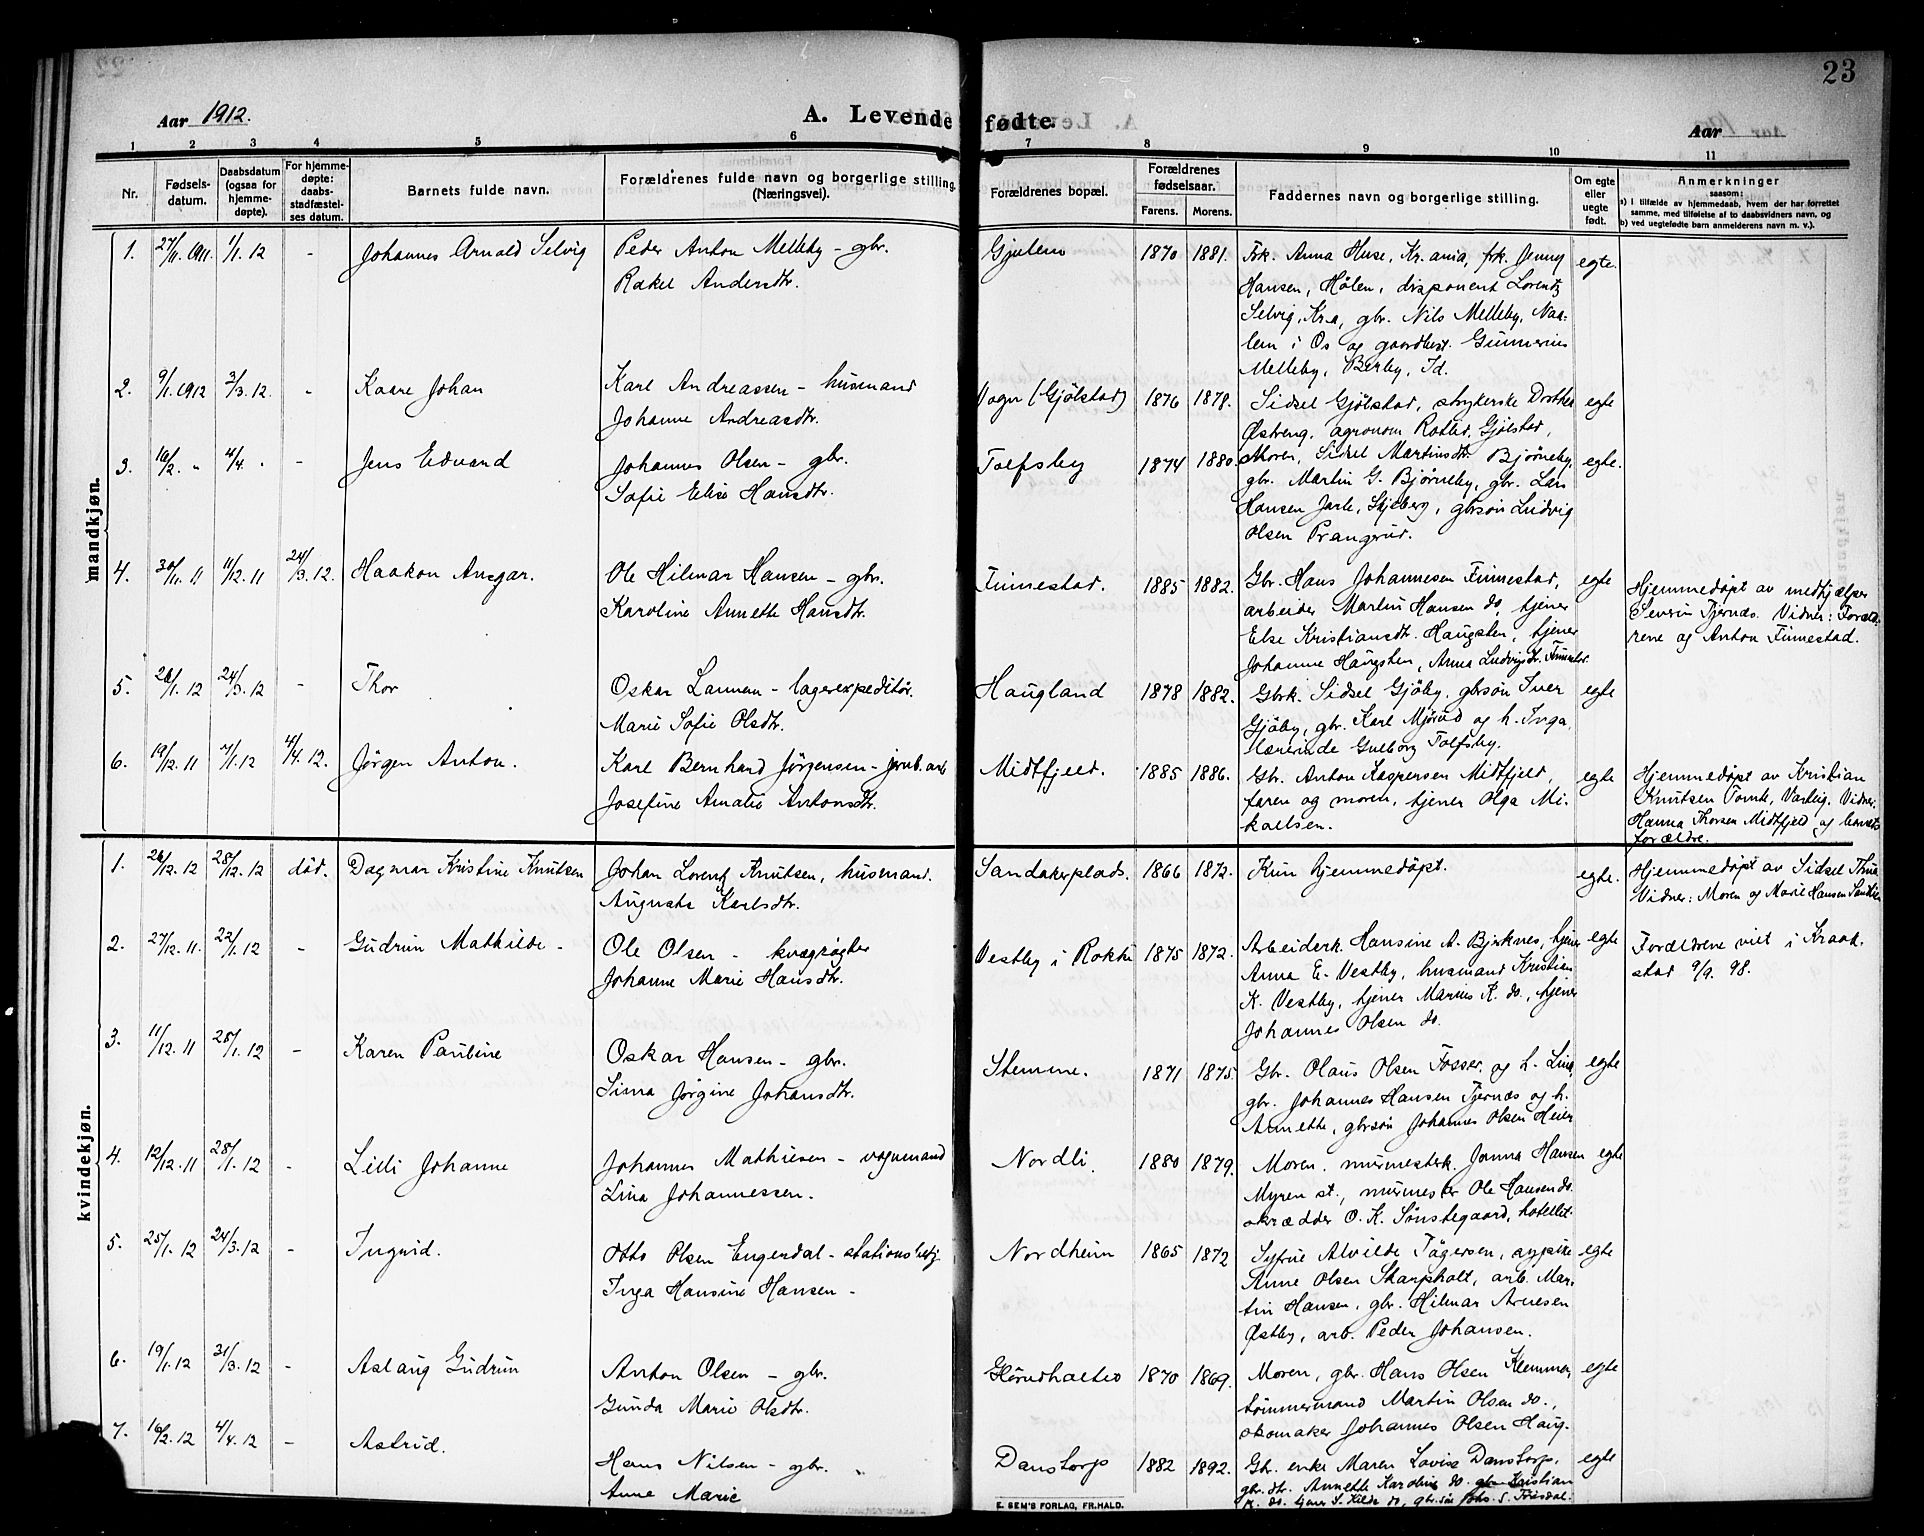 23
Aar 1912.
A. Levende fødte.
Aar
1 2 3 4 5 6 7 8 9 10 11
Nr.
Fødsels-
datum.
Daabsdatum
(ogsaa for
hjemme-
døpte).
For hjemme-
døpte:
daabs-
stadfæstel-
ses datum.
Barnets fulde navn.
Forældrenes fulde navn og borgerlige stilling.
(Næringsvei).
Forældrenes bopæl.
Forældrenes
fødselsaar.
Farens. Morens.
Faddernes navn og borgerlige stilling.
Om egte
eller
uegte
født.
Anmerkninger
saasom:
a) i tilfælde av hjemmedaab, hvem der har forrettet
samme, med tilføielse af to daabsvidners navn, og
b) ved uegtefødte barn anmelderens navn m. v.).
mandkjøn.
1. 27/11. 1911. 1/1. 12 - Johannes Arnold Selvig Peder Anton Melleby - gbr. 1870 1881. Frk. Anna Huse, Kr.ania, frk. Jenny egte.
Rakel Andersdtr. Hansen, Hølen, disponent Lorentz
Selvig, Kra, gbr. Nils Melleby, Naa-
lem i Os og gaardbest. Gunnerius
Melleby, Berby, Id.
2. 9/1. 1912 3/3. 12. - Kaare Johan Karl Andreassen - husmand (Gjølstad) 1876 1878. Sidsel Gjølstad, strykerske Dorthea egte
Johanne Andreasdtr. Østreng, agronom Gjølstad,
3. 10/2. " 4/4. " - Jens Edvard Johannes Olsen - gbr. Tolfsby 1874 1880. Moren, Sidsel Martinsdtr. Bjørneby, egte.
Sofie Elise Hansdtr. gbr. Martin G. Bjørneby, gbr. Lars
Hansen Jarle, Skjeberg, gbrsøn Ludvig
Olsen Prangerud.
4. 30/11. 11 11/12. 11 24/3. 12. Haakon Ansgar. Ole Hilmar Hansen - gbr. Finnestad. 1885 1882. Gbr. Hans Johannesen Finnestad, egte Hjemmedøpt av medhjælper
Karoline Annette Hansdtr. arbeider Martin Hansen do, tjener Severin Tjernæs. Vidner: Foræld-
Else Kristiansdtr. Haugsten, tjener rene og Anton Finnestad.
Johanne Haugsten, Anna Ludvigsdtr. Finnestad.
5. 1. 12 24/3. 12 - Thor Oskar Lannem - lagerexpeditør. Haugland 1878 1882. Gbrk. Sidsel Gjøby, gbrsøn Iver egte
Marie Sofie Olsdtr. Gjøby, gbr. Karl Mjørud og h. Inga,
lærerinde Gulborg Tolfsby.
6. 19/12. 11 7/1. 12 4/4. 12. Jørgen Anton. Karl Bernhard Jørgensen - jernb.arb Midtfjeld. 1885 1886. Gbr. Anton Kaspersen Midtfjeld, egte Hjemmedøpt av Kristian
Josefine Amalie Antonsdtr. faren og moren, tjener Olga Mi- Knutsen Tomte, Varteig. Vidner:
kaelsen. Hanna Thorsen Midtfjeld og barnets
forældre.
kvindekjøn.
1. 26/12. 12 28/12. 12 död. Dagmar Kristine Knutsen Johan Lorentz Knutsen, husmand. Sandakerplads. 1866 1872. Kun hjemmedøpt. egte. Hjemmedøpt av Sidsel
Augusta Karlsdtr. Vidner: Moren og Marie Hansen
2. 27/12. 11. 22/1. 12 - Gudrun Mathilde - Ole Olsen - kvægrøgter Vestby i Rokke 1875 1872. Arbeiderk. Hansine A. Bjerknes, tjener egte Forældrene viet i Kraak-
Johanne Marie Hansdtr. Anna E. Vestby, husmand Kristian stad 9/9. 98.
K. Vestby, tjener Marius K. do., tjener
Johannes Olsen do.
3. 11/12. 11 28/1. 12 - Karen Pauline Oskar Hansen - gbr. Stemme. 1871 1875. Gbr. Olaus Olsen Fosser, og h. Lina, egte
Sina Jørgine Johansdtr. gbr. Johannes Hansen Tjernæs og h.
Annette, gbrsøn Johannes Olsen Heier
4. 12/12. 11 28/1. 12 - Lilli Johanne Johannes Mathiesen - vognmand Nordli. 1880 1879. Moren, murmesterk. Jonna Hansen egte
Lina Johannessen. Myren st., murmester Ole Hansen do.
skrædder O. K. Sønstegaard, hotellet.
5. 25/1. 12 24/3. 12 - Ingrid. Otto Olsen Engerdal - stationsbetj. Nordheim 1865 1872 Syfrue Alvilde Tägersen, sypike egte
Inga Hansine Hansen - Anne Olsen Skarpholt, arb. Mar-
tin Hansen, gbr. Hilmar Arnesen
Østby, arb. Peder Johansen.
6. 19/1. 12 31/3. 12 - Aslaug Gudrun Anton Olsen - gbr. 1870 1869. Moren, gbr. Hans Olsen Klemmer, egte
Gunda Marie Olsdtr. tømmermand Martin Olsen do.,
skomaker Johannes Olsen Haug.
7. 16/2. 12 4/4. 12 - Astrid. Hans Nilsen - gbr. Danstorp 1882 1892. Gbr. enke Maren Lovise Danstorp, egte
Anne Marie gbr.dtr. Annette Karoline do. gbr. Kristian
do. tjener S. Kilde do, gbr.søn Johs. S.
E. SEM'S FORLAG, FR.HALD.